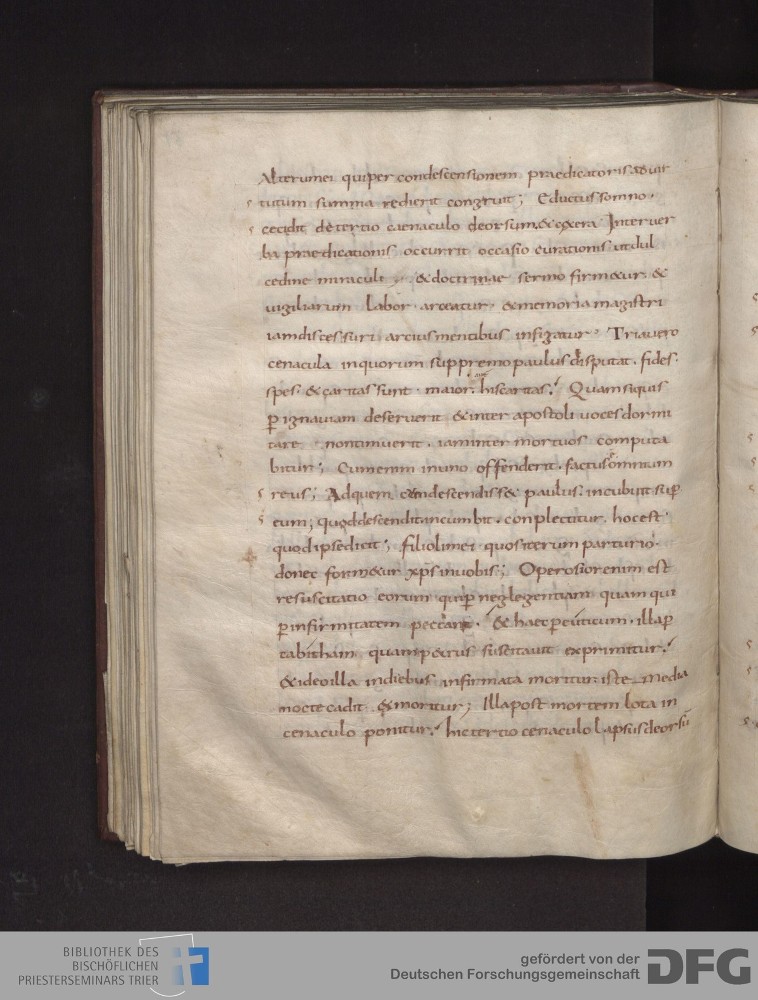 Alterumei quiper condescensionem praedicatoris, &uir
tutum summa redierit congruit; Eductus somno.
cecidit detertio caenaculo deorsum &cetera Interuer
ba praedicationis occurrit occasio curationis utdul
cedine miraculi, &doctrinae sermo firm&ur. &
uigiliarum labor. arceatur. &memoria magistri
iamdiscessuri arcius mentibus infigatur. Tria uero
cenacula inquorum suppremo paulus disputat. fides.
spes. &caritas sunt. maior. hiscaritas. Quam siquis
p ignauiam deseruerit &inter apostoli uoces dormi
tare nontimuerit. iaminter mortuos computa
bitur; Cumenim inuno offenderit. factus omnium
reus; Adquem cumdescendiss& paulus. incubuit sup
eum; quoddescenditancumbit. conplectitur. hocest.
quodipsedicit; filiolimei quos iterum parturio.
donec form&ur xps inuobis; Operosiorenim est
resuscitatio eorum quip neglegentiam quam qui
pinfirmitatem peccant. &haec peuticum. illap
tabitham quamp&rus suscitauit exprimitur.
&ideoilla indiebus infirmata moritur. iste media
nocte cadit &moritur; Illapost mortem lota in
cenaculo ponitur. hic tertio cenaculo lapsus deorsū
BIBLIOTHEK DES
BISCHÖFLICHEN
PRIESTERSEMINARS TRIER
gefördert von der
Deutschen Forschungsgemeinschaft
DFG